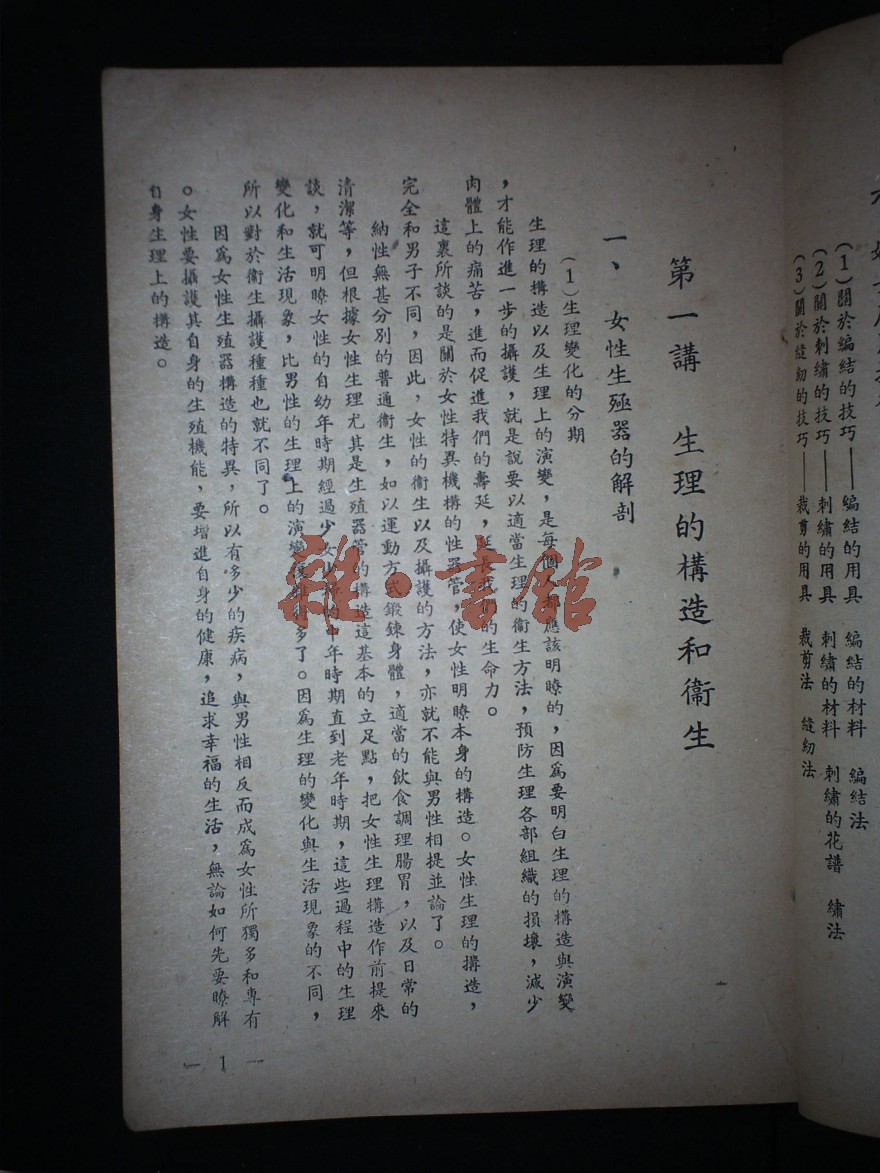 (1)關於編結的技巧——編結的用具 編結的材料 編結法
(2)關於刺繡的技巧——刺繡的用具 刺繡的材料 刺繡的花譜 繡法
(3)關於縫紉的技巧——裁剪的用具 裁剪法 縫紉法
第一講 生理的構造和衞生
一、女性生殛器的解剖
(1)生理變化的分期
生理的構造以及生理上的演變，是每個人都應該明瞭的，因爲要明白生理的構造與演變
，才能作進一步的攝護，就是說要以適當生理的衞生方法，預防生理各部組織的損壞，減少
肉體上的痛苦，進而促進我們的壽延，延長我們的生命力。
這裏所談的是關於女性特異機構的性器管，使女性明瞭本身的構造。女性生理的構造，
完全和男子不同，因此，女性的衞生以及攝護的方法，亦就不能與男性相提並論了。
納性無甚分別的普通衞生，如以運動方式鍛鍊身體，適當的飲食調理腸胃，以及日常的
清潔等，但根據女性生理尤其是生殖器管的構造這基本的立足點，把女性生理構造作前提來
談，就可明瞭女性的自幼年時期經過少女 中年時期直到老年時期，這些過程中的生理
變化和生活現象，比男性的生理上的演變 多了。因爲生理的變化與生活現象的不同，
所以對於衞生攝護種種也就不同了。
因爲女性生殖器構造的特異，所以有多少的疾病，與男性相反而成爲女性所獨多和專有
。女性要攝護其自身的生殖機能，要增進自身的健康，追求幸福的生活，無論如何先要瞭解
自身生理上的構造。
— 1 —
雜·書館